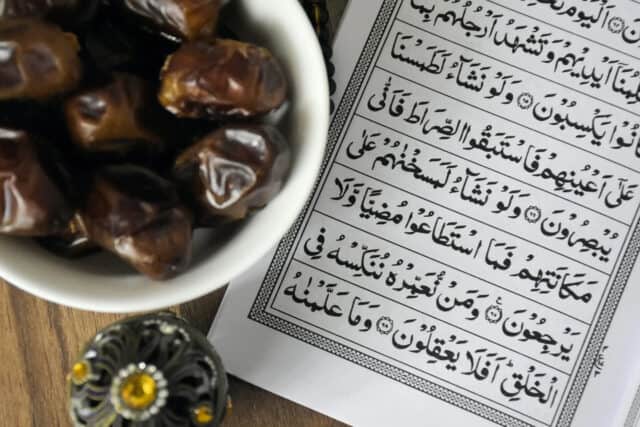 اَلْيَوْمَ
اَيْدِيْهِمْ وَتَشْهَدُ اَرْجُلُهُمْ بِمَا
كَانُوْا يَكْسِبُوْنَ ۝ وَلَوْ نَشَآءُ لَطَمَسْنَا
عَلٰٓى اَعْيُنِهِمْ فَاسْتَبَقُوا الصِّرَاطَ فَاَنّٰى
يُبْصِرُوْنَ ۝ وَلَوْ نَشَآءُ لَمَسَخْنٰهُمْ عَلٰى
مَكَانَتِهِمْ فَمَا اسْتَطَاعُوْا مُضِيًّا وَّلَا
يَرْجِعُوْنَ ۝ وَمَنْ نُّعَمِّرْهُ نُنَكِّسْهُ فِى
الْخَلْقِ اَفَلَا يَعْقِلُوْنَ ۝ وَمَا عَلَّمْنٰهُ